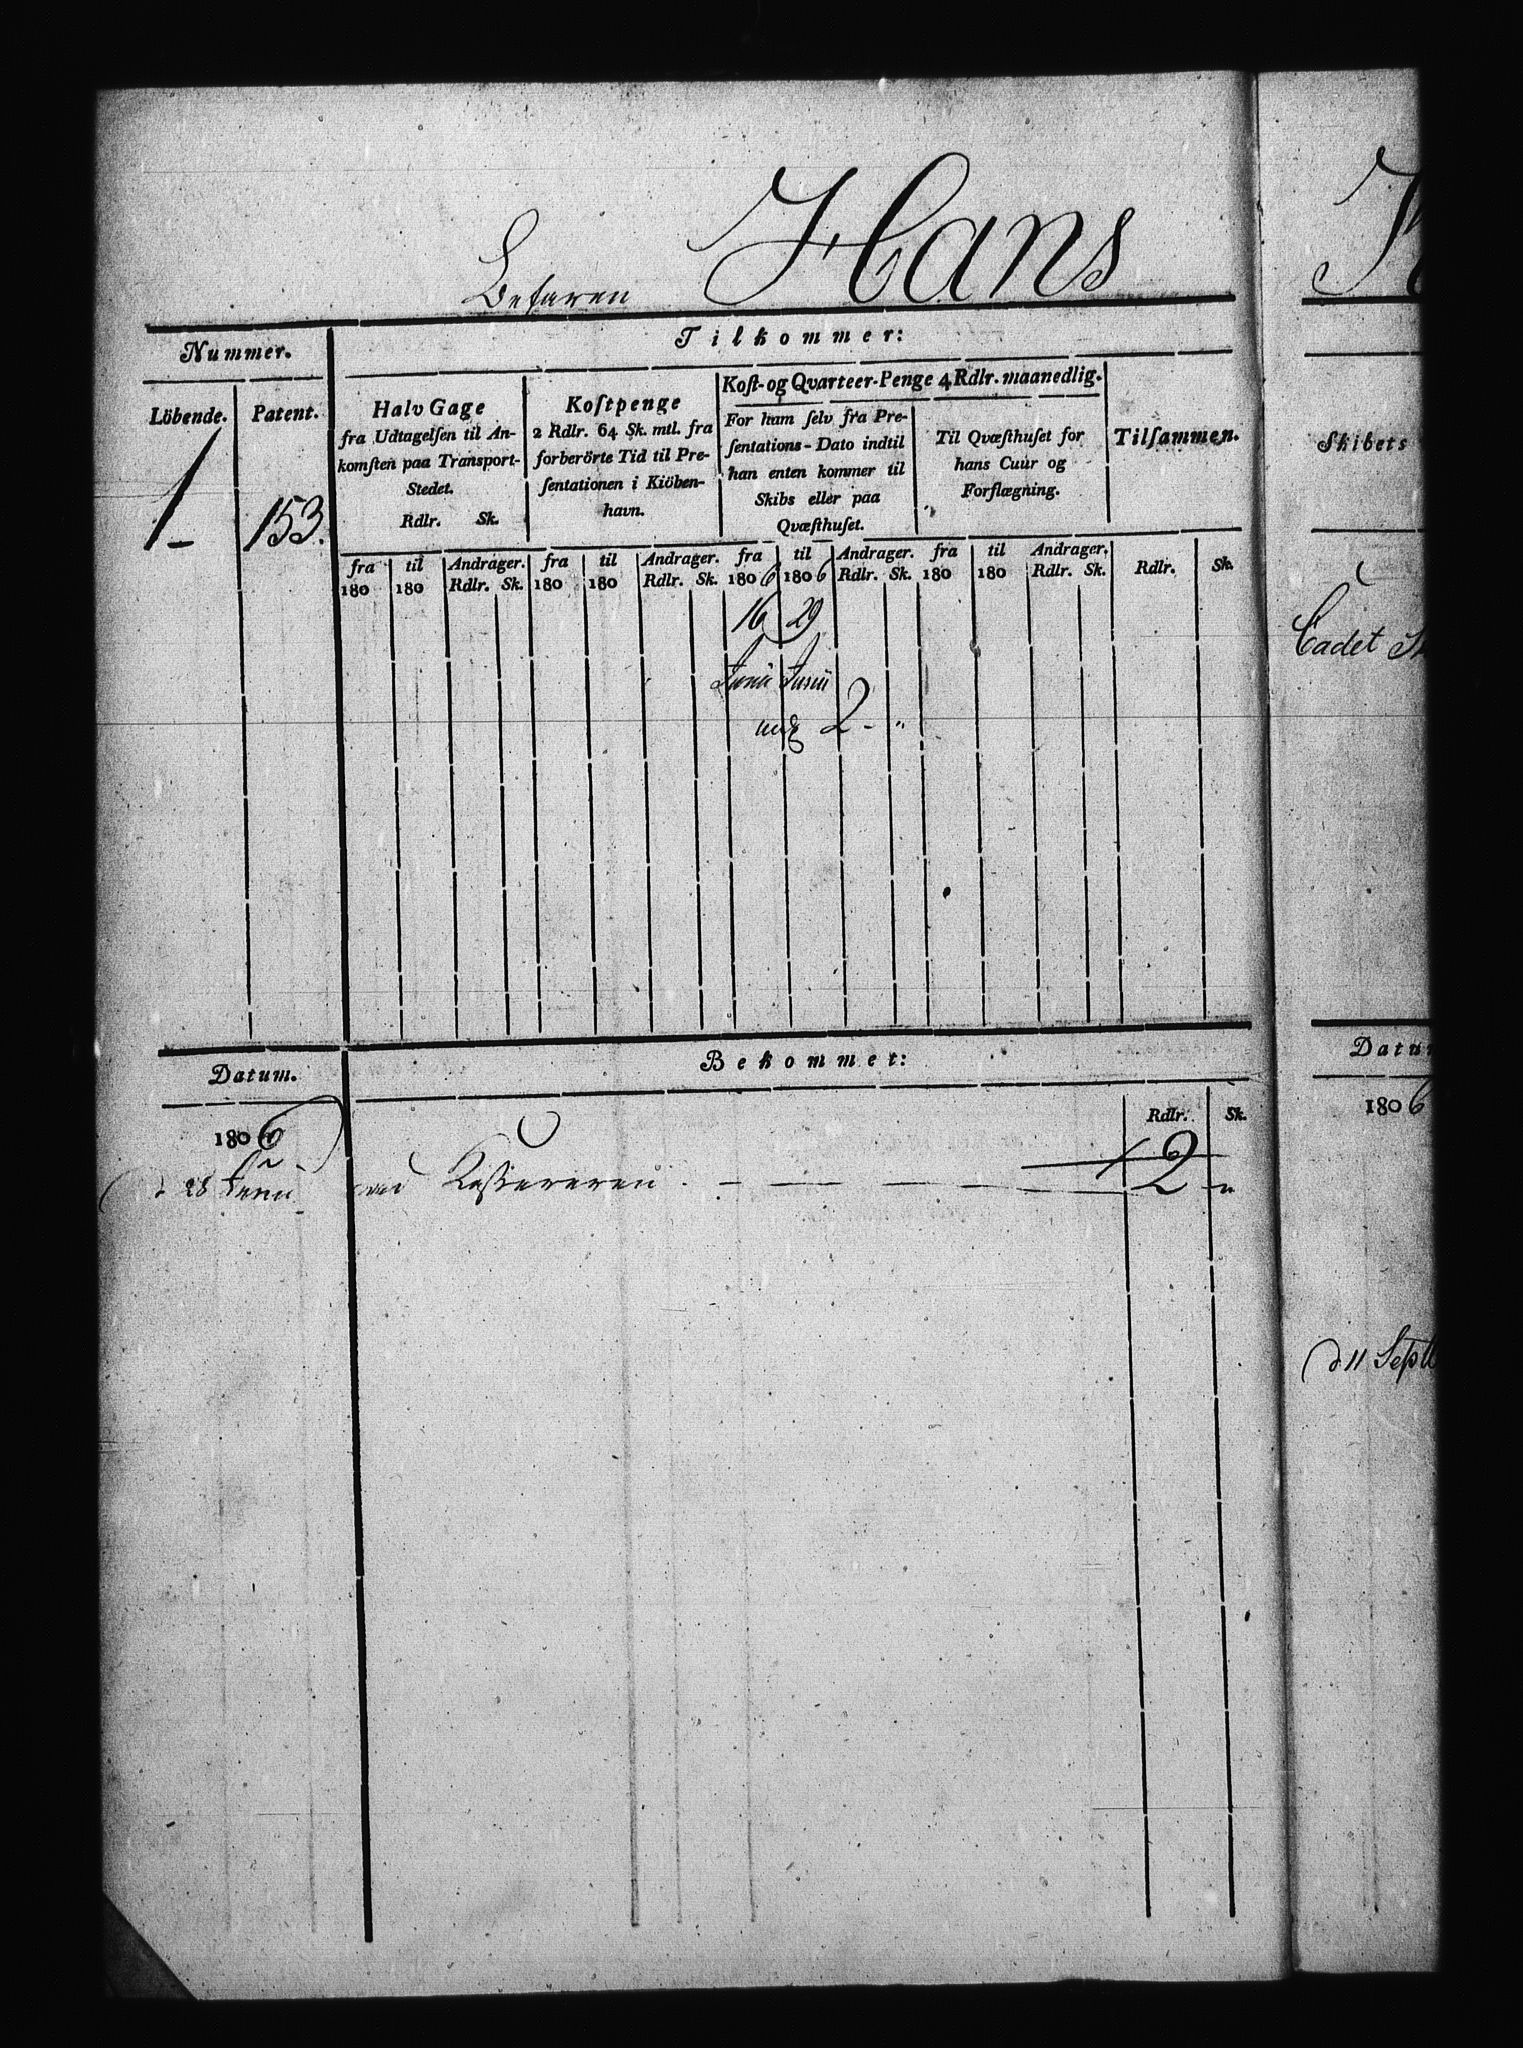 Befaren Hans
Nummer.
Löbende. Patent.
1 153.
Tilkommer:
Halv Gage
fra Udtagelsen til An-
komsten paa Transport-
Stedet.
Rdlr. Sk.
Kostpenge
2 Rdlr. 64 Sk. mtl. fra
forberörte Tid til Pre-
sentationen i Kiöben-
havn.
Kost- og Qvarteer-Penge 4 Rdlr. maanedlig.
For ham selv fra Pre-
sentations-Dato indtil
han enten kommer til
Skibs eller paa
Qvæsthuset.
Til Qvæsthuset for
hans Cuur og
Forflægning.
Tilsammen.
fra til Andrager. fra til Andrager. fra til Andrager. fra til Andrager.
180 180 Rdlr. Sk. 180 180 Rdlr. Sk. 1806 1806 Rdlr. Sk. 180 180 Rdlr. Sk. Rdlr. Sk.
16 29
Junii Junii
2 - "
Datum. Bekommet:
1806 Rdlr. Sk.
d 28 Junii ved Kassereren 2 "
Skibets
Cadet
Datum
1806
d 11 Septb